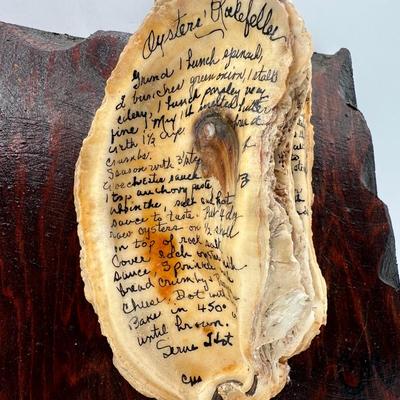 Oysters Rockefeller
Grind 1 bunch spinach,
2 bunches green onion, 1 stalk
celery, 1 bunch parsley very
fine. Mix 1 lb melted butter
with 1 1/2 cups bread
crumbs.
Season with 3 tbsp
Worcestershire sauce
1 tsp anchovy paste
absinthe, salt and hot
sauce to taste. Put 4 dz
raw oysters on 1/2 shell
on top of rock salt
Cover each with
sauce. Sprinkle
bread crumbs
cheese. Dot with
Bake in 450°
until brown.
Serve Hot